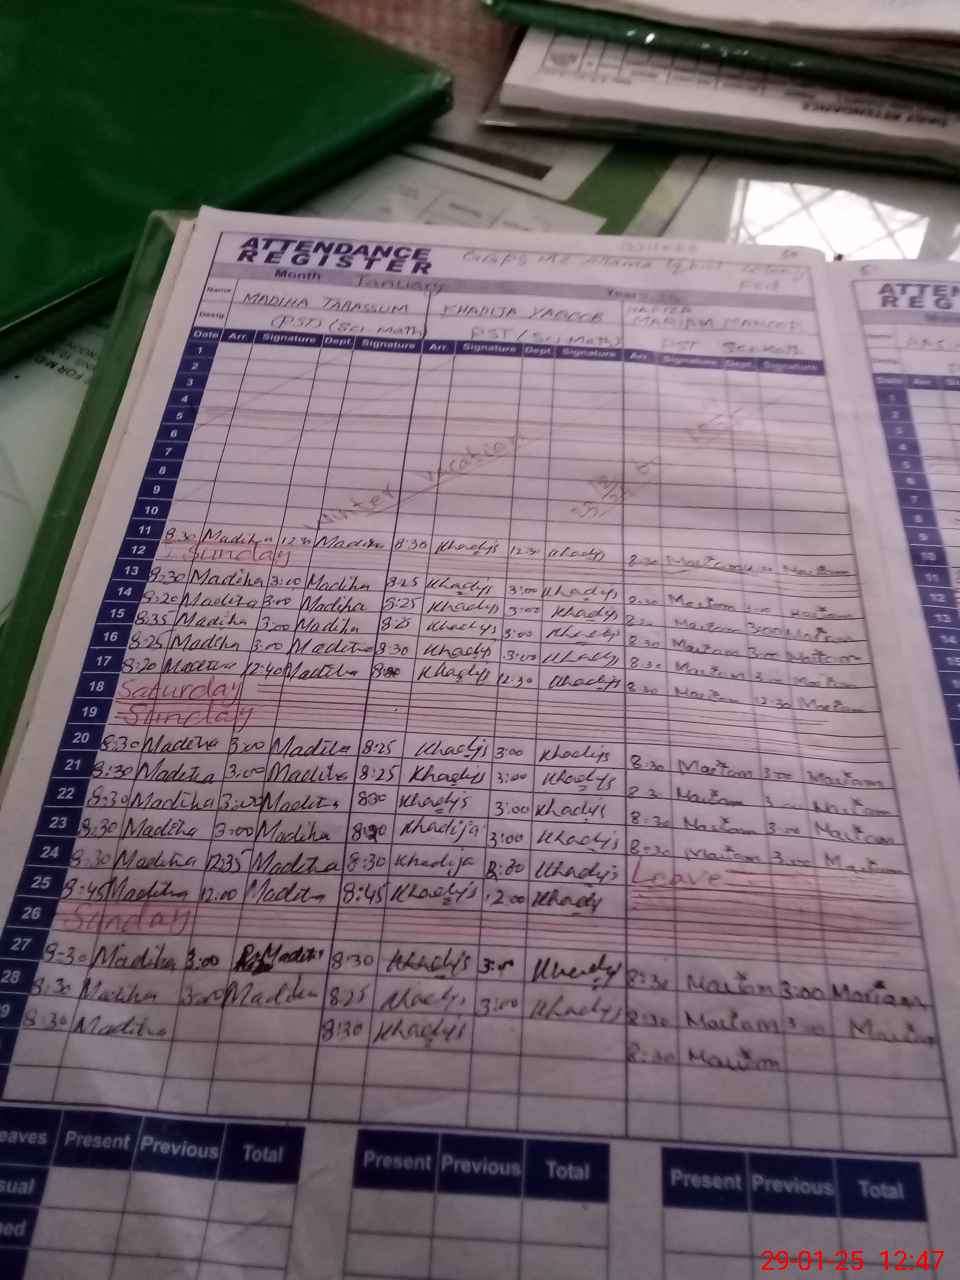 ATTENDANCE
REGISTER
Month January Year
Name MADIHA TABASSUM KHADIJA YAQOOB HAFIZA MARIAM MANZOOR
Desig (PST) (Sci-Math) PST (Sci-Math) PST Sci-Math
Date Arr. Signature Dept. Signature Arr. Signature Dept. Signature Arr. Signature Dept. Signature
1
2
3
4
5
6
7
8
9
10
Winter vacation
11 8:30 Madiha 12:30 Madiha 8:30 Khadija 12:30 Khadija 8:30 Mariam Mariam
12 Sunday
13 8:30 Madiha 3:00 Madiha 8:25 Khadija 3:00 Khadija 8:30 Mariam 3:00 Mariam
14 8:20 Madiha 3:00 Madiha 8:25 Khadija 3:00 Khadija 8:30 Mariam 3:00 Mariam
15 8:35 Madiha 3:00 Madiha 8:25 Khadija 3:00 Khadija 8:30 Mariam 3:00 Mariam
16 8:25 Madiha 3:00 Madiha 8:30 Khadija 3:00 Khadija 8:30 Mariam 3:00 Mariam
17 8:20 Madiha 12:40 Madiha Khadija 12:30 Khadija 8:30 Mariam 12:30 Mariam
18 Saturday
19 Sunday
20 8:30 Madiha 3:00 Madiha 8:25 Khadija 3:00 Khadija 8:30 Mariam 3:00 Mariam
21 8:30 Madiha 3:00 Madiha 8:25 Khadija 3:00 Khadija 8:30 Mariam Mariam
22 8:30 Madiha 3:00 Madiha 8:30 Khadija 3:00 Khadija 8:30 Mariam 3:00 Mariam
23 8:30 Madiha 3:00 Madiha Khadija 3:00 Khadija 8:30 Mariam 3:00 Mariam
24 8:30 Madiha 12:35 Madiha 8:30 Khadija Khadija Leave
25 8:45 Madiha 12:00 Madiha 8:45 Khadija 12:00 Khadija
26 Sunday
27 8:30 Madiha 3:00 Madiha 8:30 Khadija 3:00 Khadija 8:30 Mariam 3:00 Mariam
28 8:30 Madiha 3:00 Madiha 8:25 Khadija 3:00 Khadija 8:30 Mariam 3:00 Mariam
9 8:30 Madiha 8:30 Khadija 8:30 Mariam
eaves Present Previous Total Present Previous Total Present Previous Total
sual
ed
29-01-25 12:47